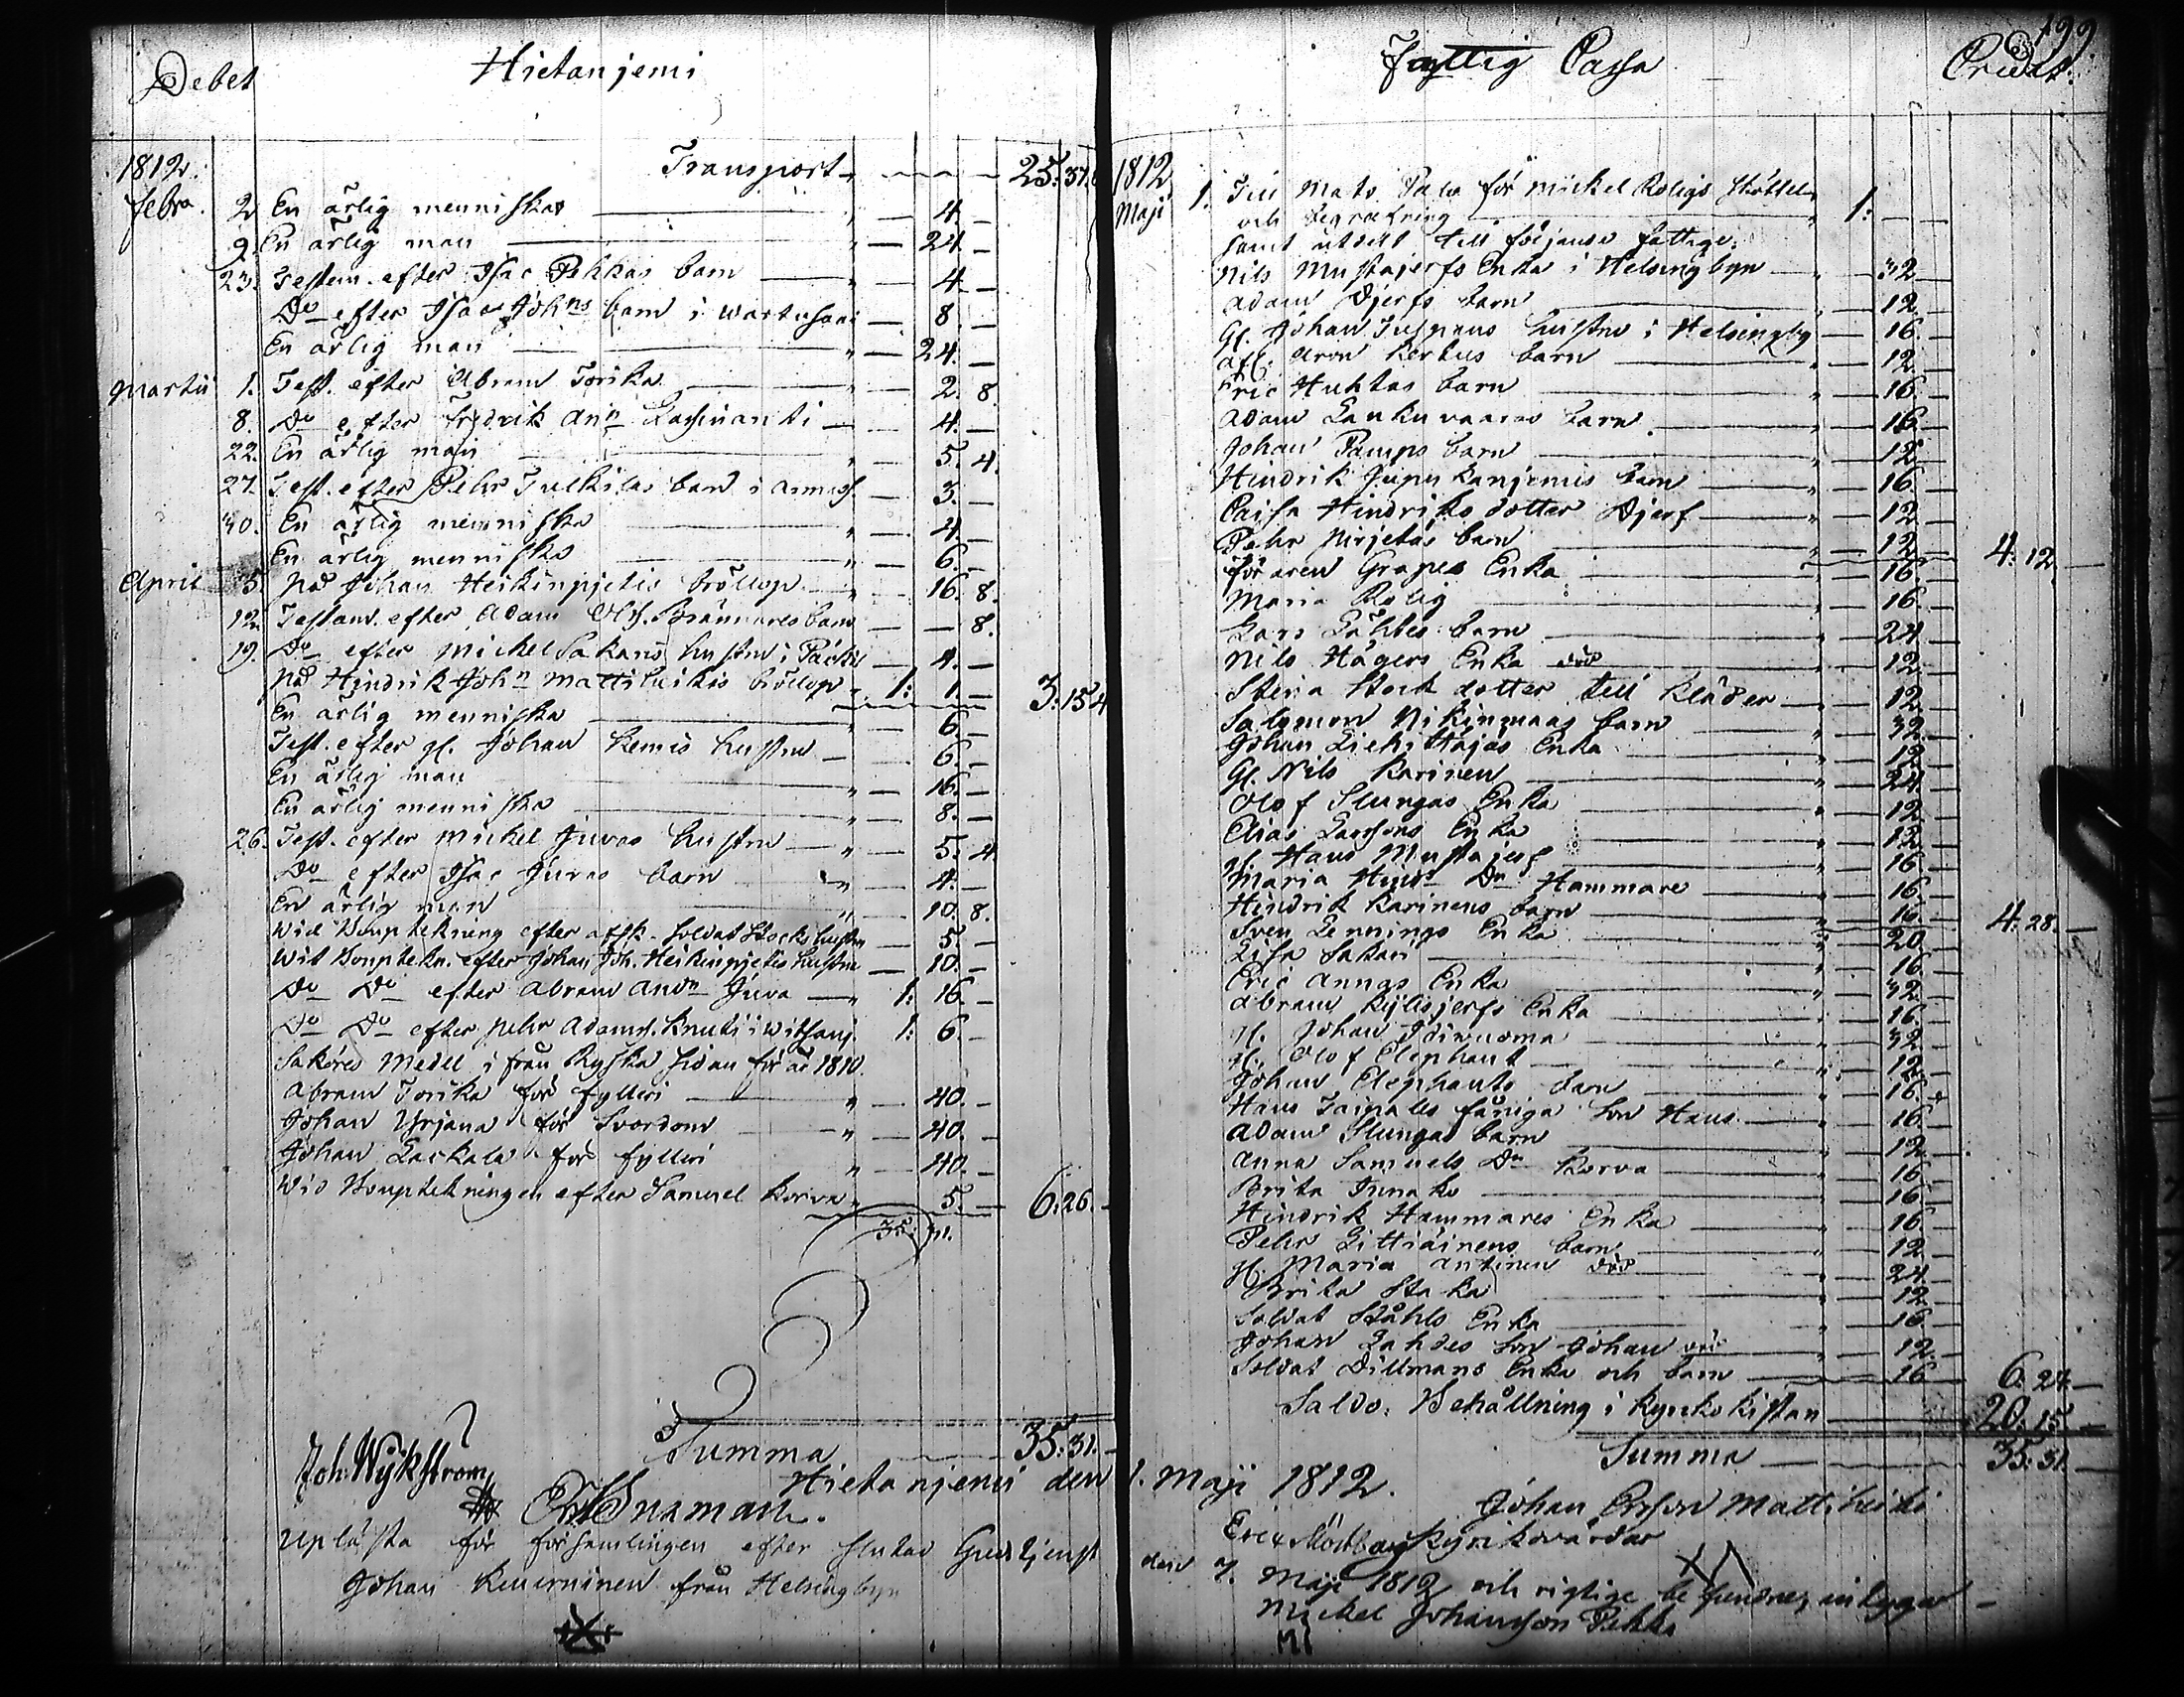 Debet
Hietanjemi
1812.
Transport 25: 31.
Febr. 2 En ärlig menniska 4.
9. En ärlig man 24.
23. Testem. efter Isac Pekkas barn 4.
Do efter Isac Johns barn i 8.
En ärlig man 24.
Martii 1. Test. efter Abram Torika 2. 8.
8. Do efter Fredrik 4.
22. En ärlig man 5. 4.
27. Test. efter Pehr Tulkilas barn i 3.
30. En ärlig menniska 4.
En ärlig menniska 6.
April 5. på Johan Heikinpjetis bröllop 16. 8.
12. Testam. efter Adam Brännares barn 8.
19. Do efter Michel Sakaris hustru i 4.
på Hindrik John Mattiheikis bröllop 1: 1. 3: 15 4
En ärlig menniska 6.
Test. efter gl. Johan Kemis hustru 6.
En ärlig man 16.
En ärlig menniska 8.
26. Test. efter Michel Juvas hustru 5. 4
Do efter Isac Juvas barn 4.
En ärlig man 10. 8.
Wid Boupteckning efter afsk. soldat Stocks hustru 5.
Wid Bouptekn. efter Johan Joh. Heikinpjetis hustru 10.
Do Do efter Abram Juva 1: 16
Do Do efter Pehr Adams. Knuti i 1: 6.
Saköres Medel i från Ryska sidan för år 1810.
Abram Torika för fylleri 40.
Johan Yrjana för Svordom 40.
Johan Lackala för fylleri 40.
Wid Bouptekningen efter Samuel Korva 5. 6: 26.
35. 31.
Summa 35: 31.
Joh: Wijkström
Hietanjemi den 1. Maji 1812.
Snaman.
Uplästa för församlingen efter slutad Gudstjenst den 7. Maji 1812 och rigtige befundne, intygar
Johan Keuerninen från Helsingbyn
199
Fattig Cassa
Credit.
1812
Maji 1. Till Mats Palo för Mickel Roligs skötsel
och begrafning 1:
samt utdelt till följande fattige.
Nils Mustajerfs Enka i Helsingbyn 32
Adam Djerfs barn 12.
Gl. Johan hustru i Helsingby 16.
Aron Kortus barn 12.
Eric Huhtas barn 16.
Adam Lankuvaaras barn 16.
Johan Pamps barn 12
Hindrik Jupukanjemis barn 16
Caisa Hindriks dotter Djerf 12.
Pehr barn 12. 4: 12.
Grapes Enka 16.
Maria Rolig 16.
Lars Lahtes barn 24.
Nils Hägers Enka död 12.
Stina Stock dotter till kläder 12.
Salomon Nikinmaas barn 32.
Johan Liekittäjäs Enka 12.
Gl. Nils Karinen 24.
Olof Slungas Enka 12.
Elias Larssons Enka 12.
gl. Hans Mustajerf 16
Maria Hindr Dr Hammare 16.
Hindrik Karinens barn 16. 4: 28.
Sven Lennings Enka 20.
Lisa Sakari 16.
Eric Annas Enka 32.
Abram Kylisjerfs Enka 16.
gl. Johan 32.
gl. Olof Elephant 12.
Johan Elephants barn 16.
Hans Taipales fåniga son Hans 16.
Adam Slungas barn 12
Anna Samuels Dr Korva 16
Brita Junako 16
Hindrik Hammares Enka 16.
Pehr Littiäinens barn 12.
gl. Maria Antinen död 24.
Brita Staka 12.
Soldat Ståhls Enka 16.
Johan Lahdes son Johan 12.
Soldat Dillmans Enka och barn 16 6: 24.
Saldo. Behållning i Kyrkokistan 20: 15.
Summa 35: 31.
Johan Ersson Mattiheiki
Kyrkovärdar
Mickel Johansson Pekka